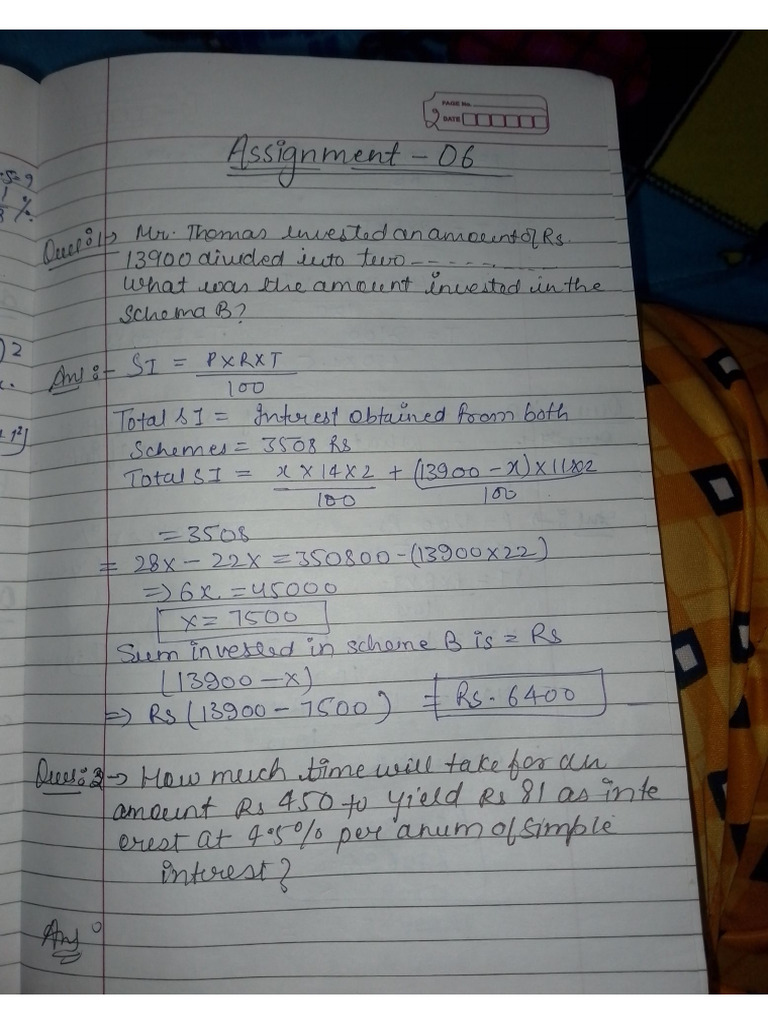 PAGE No.
DATE
Assignment - 06
Ques:1→ Mr. Thomas invested an amount of Rs.
13900 divided into two ----------
What was the amount invested in the
Schema B?
Ans:- SI = P×R×T
100
Total SI = Interest obtained from both
Schemes = 3508 Rs
Total SI = x × 14 × 2 + (13900 - x) × 11 × 2
100 100
= 3508
= 28x - 22x = 350800 - (13900×22)
⇒ 6x = 45000
x = 7500
Sum invested in scheme B is = Rs
(13900 - x)
⇒ Rs (13900 - 7500) = Rs. 6400
Ques:2→ How much time will take for an
amount Rs 450 to yield Rs 81 as inte
erest at 4.5% per anum of simple
interest?
Ans:
5=9
%.
) 2